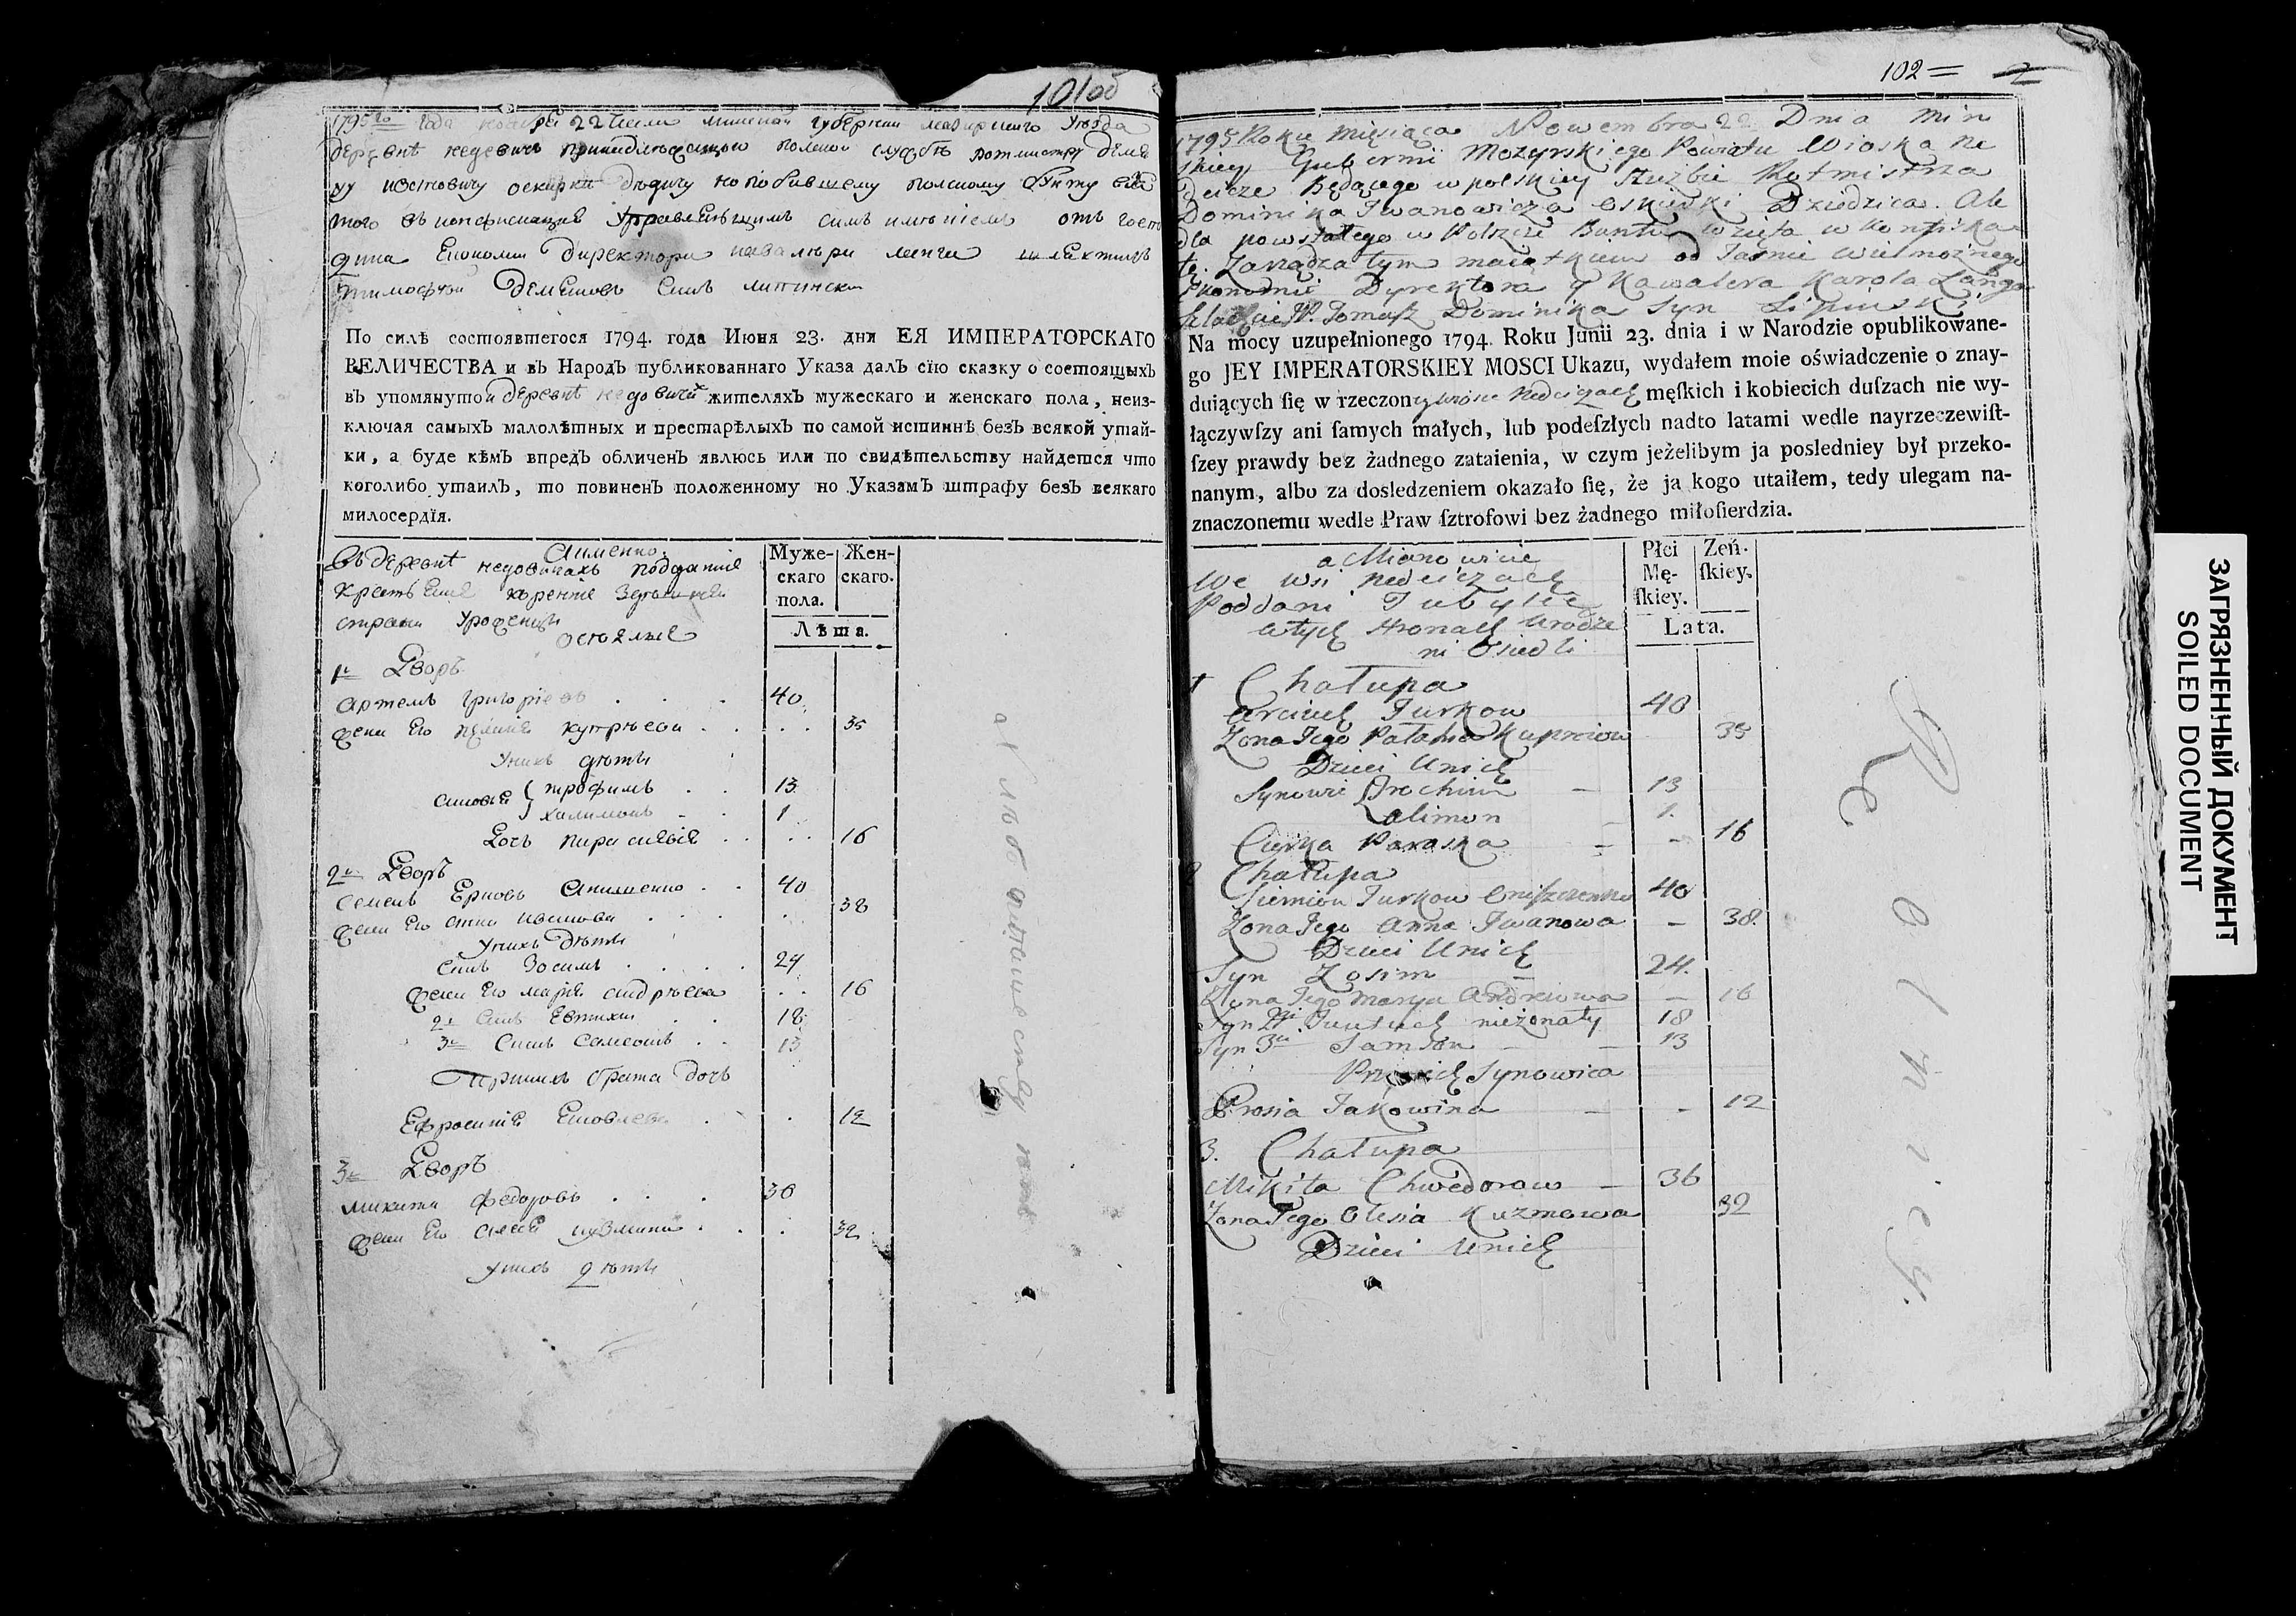 101об
1795го года ноября 22 числа минской губернии мозирского уезда
деревнѣ недевичъ принадлежащой полской службѣ ротмистру доми
ку ивановичу оскирки дѣдичу но по бившему полскому бунту взя
того въ конфискацие управляющимъ симъ имѣнiемъ отъ госпо
дина економии директора кавалера ланга шляхтичъ
тимофѣй деменовъ синъ липински
По силѣ состоявшегося 1794. года Июня 23. дня ЕЯ ИМПЕРАТОРСКАГО
ВЕЛИЧЕСТВА и въ Народъ публикованнаго Указа далъ сїю сказку о состоящыхъ
въ упомянутой деревнѣ недовичй жителяхъ мужескаго и женскаго пола, неиз-
ключая самыхъ малолѣтныхъ и престарѣлыхъ по самой истиннѣ безъ всякой утай-
ки, а буде кѣмъ впредъ обличенъ явлюсь или по свидѣтельству найдется что
коголибо утаилъ, то повиненъ положенному по Указамъ штрафу безъ всякаго
милосердїя.
Аименно.
въ деревнѣ недовичахъ поддание
крестьяне
страни уроженци
оседлые
Муже-
скаго
пола.
Жен-
скаго.
Лѣта.
1й Дворъ
артемъ григориевъ . . . 40
жена его купрѣева . . . . 35
У нихъ дѣти
синовья { трофимъ . . 13
халимонъ - . 1
Дочь парасквия . . . . 16
2й Дворъ
семенъ Ерковъ Анищенко . . 40
жена его анна иванова . . . . 38
У нихъ дѣти
синъ Зосимъ . . . . 24
жена его мария андрѣева . . 16
2й синъ Евтихи . . 18
3й синъ самсонъ . . 13
При нихъ брата дочь
Ефросиния Яковлева . . 12
3й Дворъ
микита федоровъ . . . 36
жена его кузмина . . . 32
У нихъ дѣти
102 =
1795 Roku Miesiąca Nowembra 22 Dnia Min
skiey Gubernii Mozyrskiego Powiatu Wioska Ne
deicze Będącego w polskiey Służbie Rotmistrza
Dominika Iwanowicza Oskierki Dziedzica. Ale
dla powstałego w Polszcze Buntu wzięta w Konfiska
tę. Zarządza tym maiątkiem od Jaśnie Wielmożnego
Ekonomii Dyrektora y Kawalera Karola Langa
Szlachcic JP. Tomasz Dominika Syn Lipinski
Na mocy uzupełnionego 1794. Roku Junii 23. dnia i w Narodzie opublikowane-
go JEY IMPERATORSKIEY MOSCI Ukazu, wydałem moie oświadczenie o znay-
duiących ſię w rzeczoney wiosce Nedeiczach męſkich i kobiecich duſzach nie wy-
łączywſzy ani ſamych małych, lub podeſzłych nadto latami wedle nayrzeczewiſt-
ſzey prawdy bez żadnego zataienia, w czym jeżelibym ja posledniey był przeko-
nanym, albo za dosledzeniem okazało ſię, że ja kogo utaiłem, tedy ulegam na-
znaczonemu wedle Praw ſztrofowi bez żadnego miłoſierdzia.
a Mianowicie
We Wsi Nedeiczach
Poddani Tubylce
w tych stronach Urodze
ni Osiedli
Płci
Mę-
ſkiey.
Zeń-
ſkiey.
Lata.
1 Chałupa
Arciuch Jurkow 40
Zona Jego Katahia Kupriiow 35
Dzieci Unich
Synowie { Trochim - 13
Alimon - 1.
Curka Paraska - - 16
2 Chałupa
Siemion Jurkow Oniszczenko 40
Zona Jego Anna Iwanowa - 38.
Dzieci Unich
Syn Zosim - 24.
Zona Jego Marya Andreiowa - 16
Syn 2gi Jewtuch nieżonaty 18
Syn 3ci Samson - - 13
Przynich Synowica
Prosia Jakowina - - 12
3. Chałupa
Mikita Chwedorow - 36
Zona Jego Olesia Kuzmowa 32
Dzieci Unich
Rolniey.
ЗАГРЯЗНЕННЫЙ ДОКУМЕНТ
SOILED DOCUMENT